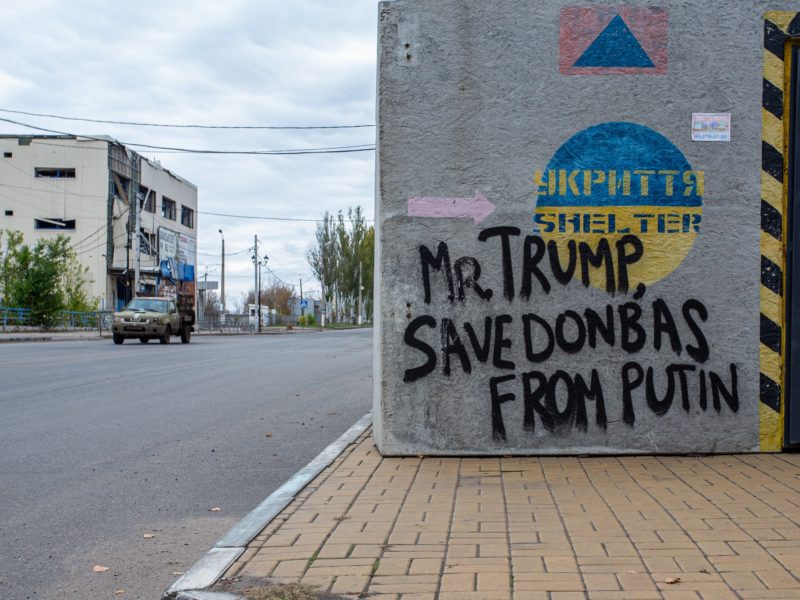 УКРИТТЯ
SHELTER
MR. TRUMP,
SAVE DONBAS
FROM PUTIN